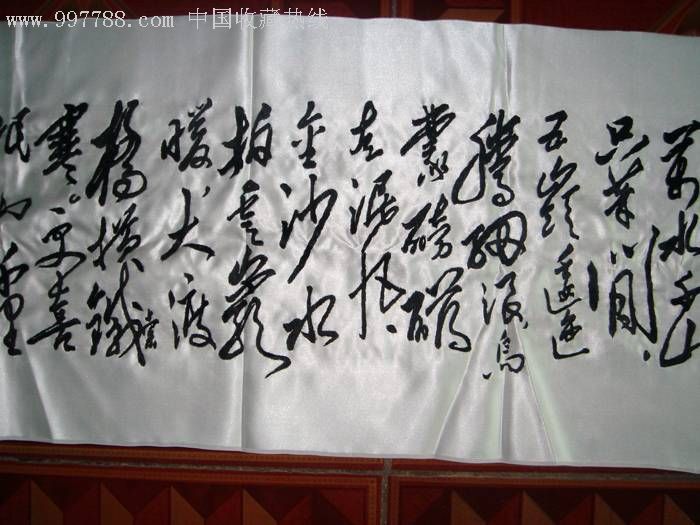 www.997788.com 中国收藏热线
萬水千山
只等閒、
五嶺逶迤
騰細浪、烏
蒙磅礴
走泥丸、
金沙水
拍雲崖
暖、大渡
橋橫鐵索
寒。更喜
岷山千里